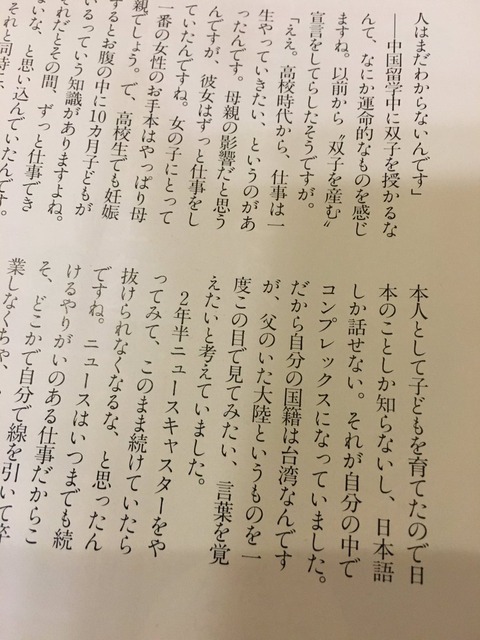 人はまだわからないんです」
――中国留学中に双子を授かるな
んて、なにか運命的なものを感じ
ますね。以前から〝双子を産む〟
宣言をしてらしたそうですが。
「ええ。高校時代から、仕事は一
生やっていきたい、というのがあ
ったんです。母親の影響だと思う
んですが、彼女はずっと仕事をし
ていたんですね。女の子にとって
一番の女性のお手本はやっぱり母
親でしょう。で、高校生でも妊娠
するとお腹の中に10カ月子どもが
いるっていう知識がありますよね。
それだとその間、ずっと仕事でき
ないな、と思い込んでいたんです。
それと同時に、
本人として子どもを育てたので日
本のことしか知らないし、日本語
しか話せない。それが自分の中で
コンプレックスになっていました。
だから自分の国籍は台湾なんです
が、父のいた大陸というものを一
度この目で見てみたい、言葉を覚
えたいと考えていました。
２年半ニュースキャスターをや
ってみて、このまま続けていたら
抜けられなくなるな、と思ったん
ですね。ニュースはいつまでも続
けるやりがいのある仕事だからこ
そ、どこかで自分で線を引いて卒
業しなくちゃ、